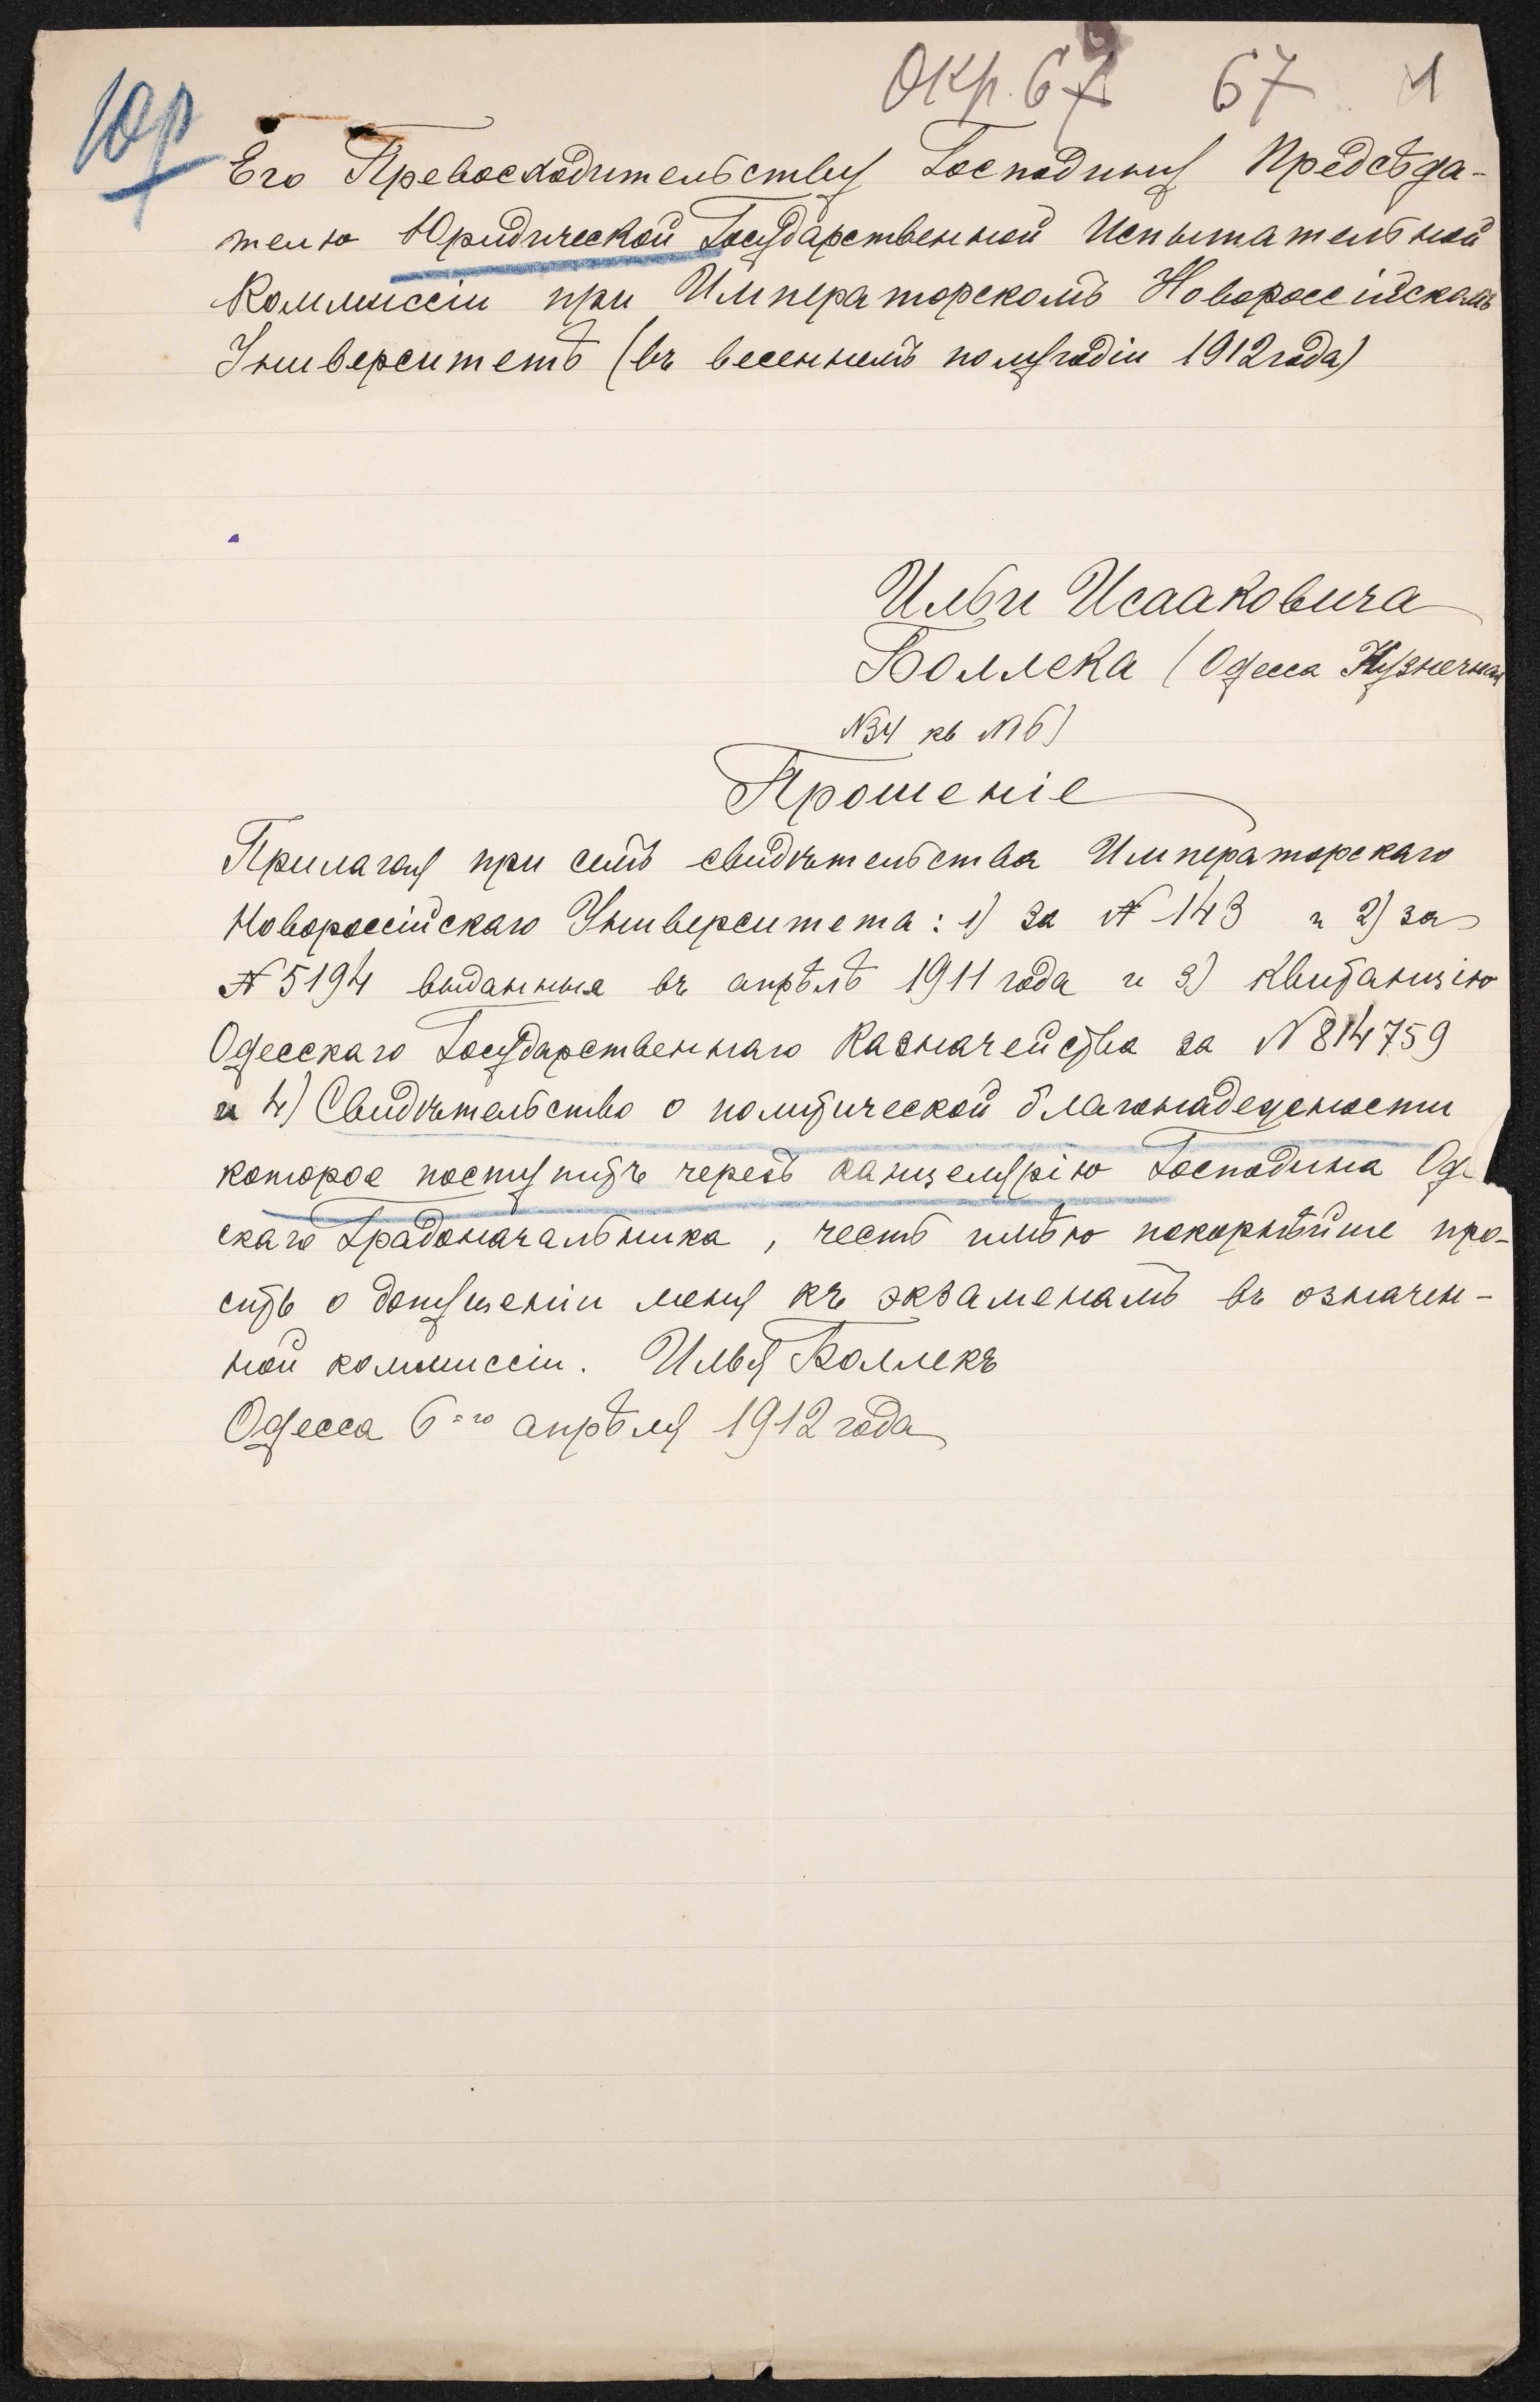 Юр
Окр. 67 67 1
Его Превосходительству Господину Предсѣда-
телю Юридической Государственной Испытательной
Коммиссіи при Императорскомъ Новороссійскомъ
Университетѣ (въ весеннемъ полугодіи 1912 года)
Ильи Исааковича
Боллека (Одесса Кузнечная
№34 кв №6)
Прошеніе
Прилагая при семъ свидѣтельства Императорскаго
Новороссійскаго Университета: 1) за № 143 и 2) за
№ 5194 выданныя въ апрѣлѣ 1911 года и 3) Квитанцію
Одесскаго Государственнаго Казначейства за № 814759
и 4) Свидѣтельство о политической благонадежности
которое поступитъ черезъ канцелярію Господина Оде
скаго Градоначальника, честь имѣю покорнѣйше про-
сить о допущеніи меня къ экзаменамъ въ означен-
ной коммиссіи. Илья Боллекъ
Одесса 6=го апрѣля 1912 года